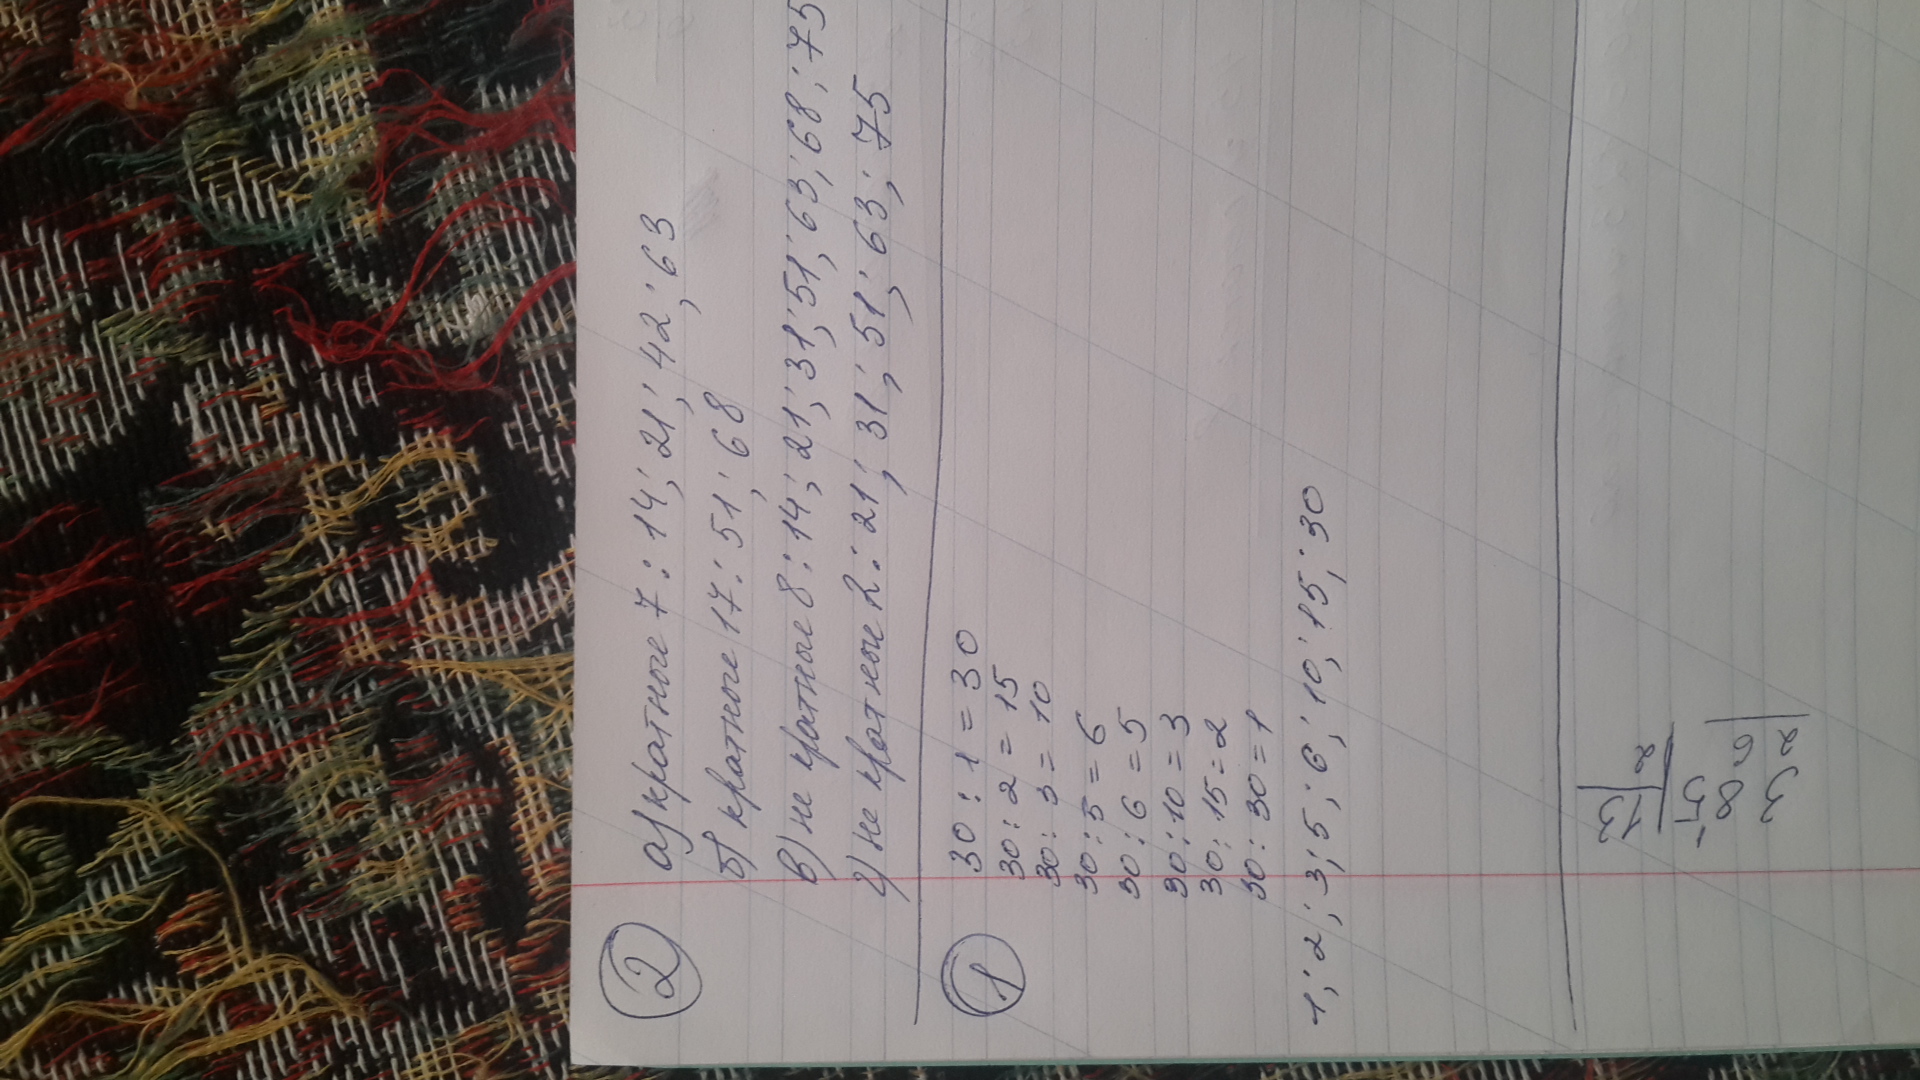 2
а) кратные 7: 14; 21; 42; 63
б) кратные 17: 51; 68
в) не кратные 8: 14; 21; 31; 51; 63; 68; 75
г) не кратные 2: 21; 31; 51; 63; 75
1
30 : 1 = 30
30 : 2 = 15
30 : 3 = 10
30 : 5 = 6
30 : 6 = 5
30 : 10 = 3
30 : 15 = 2
30 : 30 = 1
1; 2; 3; 5; 6; 10; 15; 30